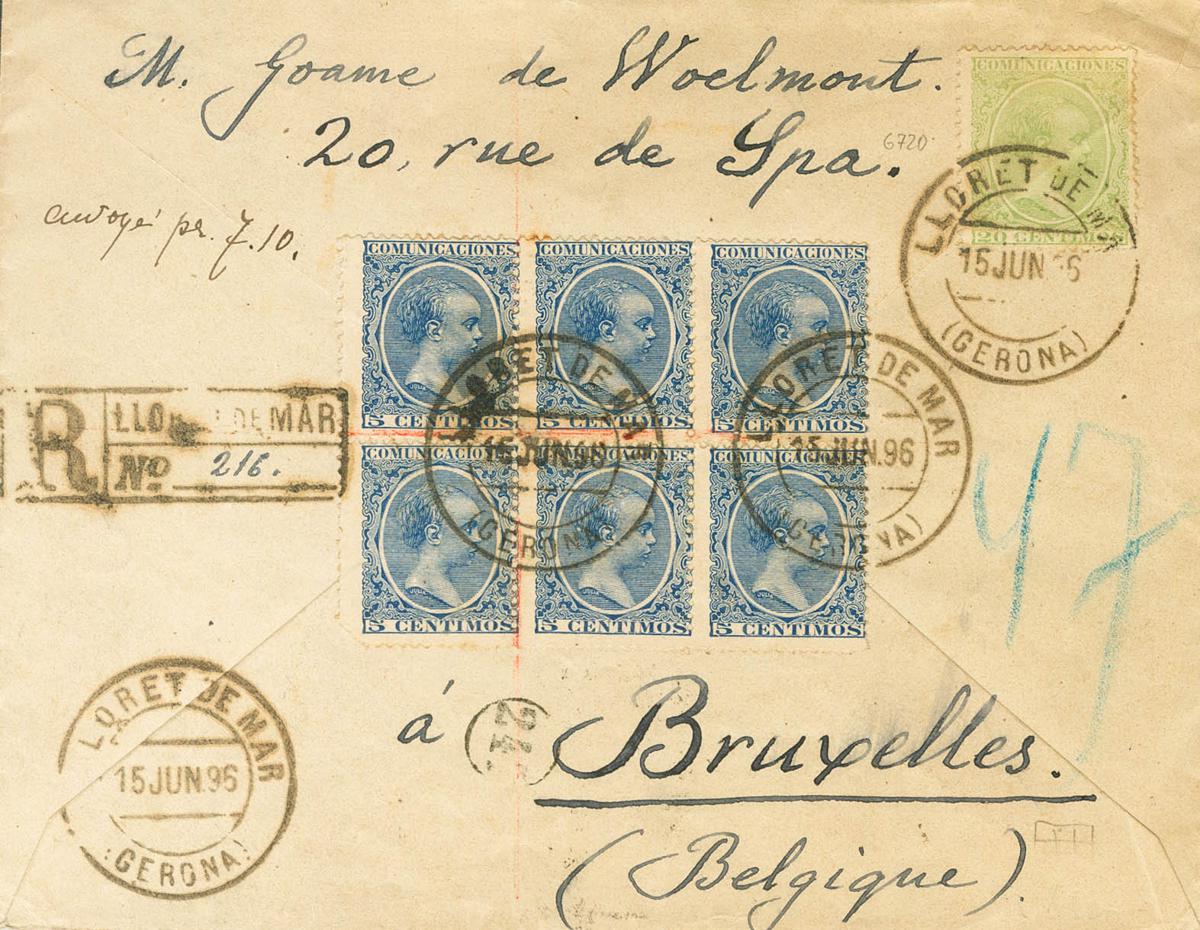 M. Goame de Woelmont.
20, rue de Spa.
6720.
envoyé pr. 7.10.
COMUNICACIONES
20 CENTIMOS
LLORET DE MAR
15 JUN 96
(GERONA)
COMUNICACIONES COMUNICACIONES COMUNICACIONES
5 CENTIMOS 5 CENTIMOS 5 CENTIMOS
COMUNICACIONES COMUNICACIONES COMUNICACIONES
5 CENTIMOS 5 CENTIMOS 5 CENTIMOS
LLORET DE MAR
15 JUN. 96
(GERONA)
LLORET DE MAR
15 JUN. 96
(GERONA)
R LLORET DE MAR
Nº 216.
47
LLORET DE MAR
15 JUN. 96
(GERONA)
24
á Bruxelles.
(Belgique)